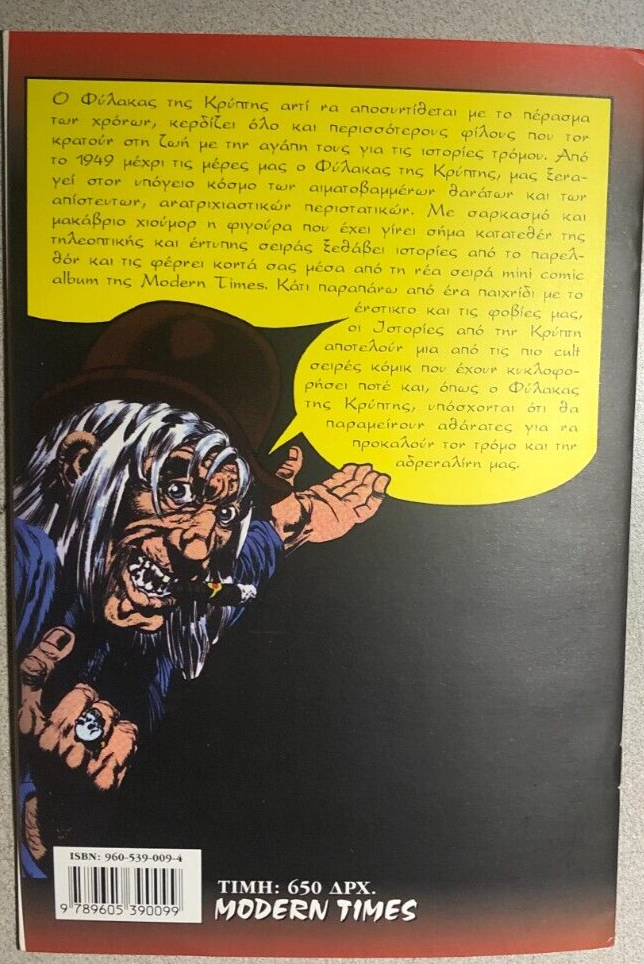 Ο Φύλακας της Κρύπτης αντί να αποσυντίθεται με το πέρασμα
των χρόνων, κερδίζει όλο και περισσότερους φίλους που τον
κρατούν στη ζωή με την αγάπη τους για τις ιστορίες τρόμου. Από
το 1949 μέχρι τις μέρες μας ο Φύλακας της Κρύπτης, μας ξενα-
γεί στον υπόγειο κόσμο των αιματοβαμμένων θανάτων και των
απίστευτων, ανατριχιαστικών περιστατικών. Με σαρκασμό και
μακάβριο χιούμορ η φιγούρα που έχει γίνει σήμα κατατεθέν της
τηλεοπτικής και έντυπης σειράς ξεθάβει ιστορίες από το παρελ-
θόν και τις φέρνει κοντά σας μέσα από τη νέα σειρά mini comic
album της Modern Times. Κάτι παραπάνω από ένα παιχνίδι με το
ένστικτο και τις φοβίες μας,
οι Ιστορίες από την Κρύπτη
αποτελούν μια από τις πιο cult
σειρές κόμικ που έχουν κυκλοφο-
ρήσει ποτέ και, όπως ο Φύλακας
της Κρύπτης, υπόσχονται ότι θα
παραμείνουν αθάνατες για να
προκαλούν τον τρόμο και την
αδρεναλίνη μας.
ISBN: 960-539-009-4
9 789605 390099
ΤΙΜΗ: 650 ΔΡΧ.
MODERN TIMES